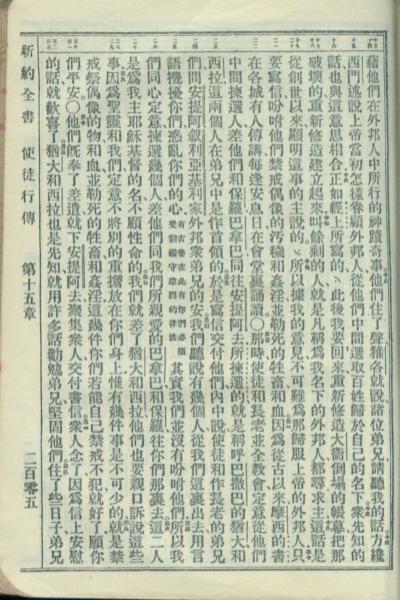 藉他們在外邦人中所行的神蹟奇事、他們住了聲、雅各就說、諸位弟兄、請聽我的話、方纔
西門述說上帝當初怎樣眷顧外邦人、從他們中間選取百姓歸於自己的名下、衆先知的
話、也與這意思相合、正如經上所寫的、此後我要回來、重新修造大衛倒塌的帳幕、把那
破壞的重新修造建立起來、叫餘剩的人、就是凡稱爲我名下的外邦人、都尋求主、這話是
從創世以來顯明這事的主說的、所以據我的意見、不可難爲那歸服上帝的外邦人、只
要寫信、吩咐他們禁戒偶像的汚穢和姦淫、並勒死的牲畜和血、因爲從古以來、摩西的書
在各城有人傳講、每逢安息日、在會堂裏誦讀〇那時使徒和長老並全教會、定意從他們
中間揀選人、差他們和保羅巴拿巴同往安提阿去、所揀選的就是稱呼巴撒巴的猶大和
西拉、這兩個人在弟兄中是作首領的、於是寫信交付他們、內中說、使徒和作長老的弟兄
們、問安提阿敘利亞基利家外邦衆弟兄的安、我們聽說有幾個人從我們這裏出去、用言
語攪擾你們、惑亂你們的心、有古卷在此有你們必須受割禮守摩西的律法 其實我們並沒有吩咐他們、所以我
們同心定意、揀選幾個人、差他們同我們所親愛的巴拿巴和保羅、往你們那裏去、這二人
是爲我主耶穌基督的名、不顧性命的、我們就差了猶大和西拉、他們也要親口訴說這些
事、因爲聖靈和我們、定意不將別的重擔放在你們身上、惟有幾件事是不可少的、就是禁
戒祭偶像的物、和血、並勒死的牲畜、和姦淫、這幾件你們若能自己禁戒不犯就好了、願你
們平安〇他們既奉了差遣、就下安提阿去、聚集衆人、交付書信、衆人念了、因爲信上安慰
的話、就歡喜了、猶大和西拉也是先知、就用許多話勸勉弟兄、堅固他們、住了些日子、弟兄
新約全書 使徒行傳 第十五章 二百零五